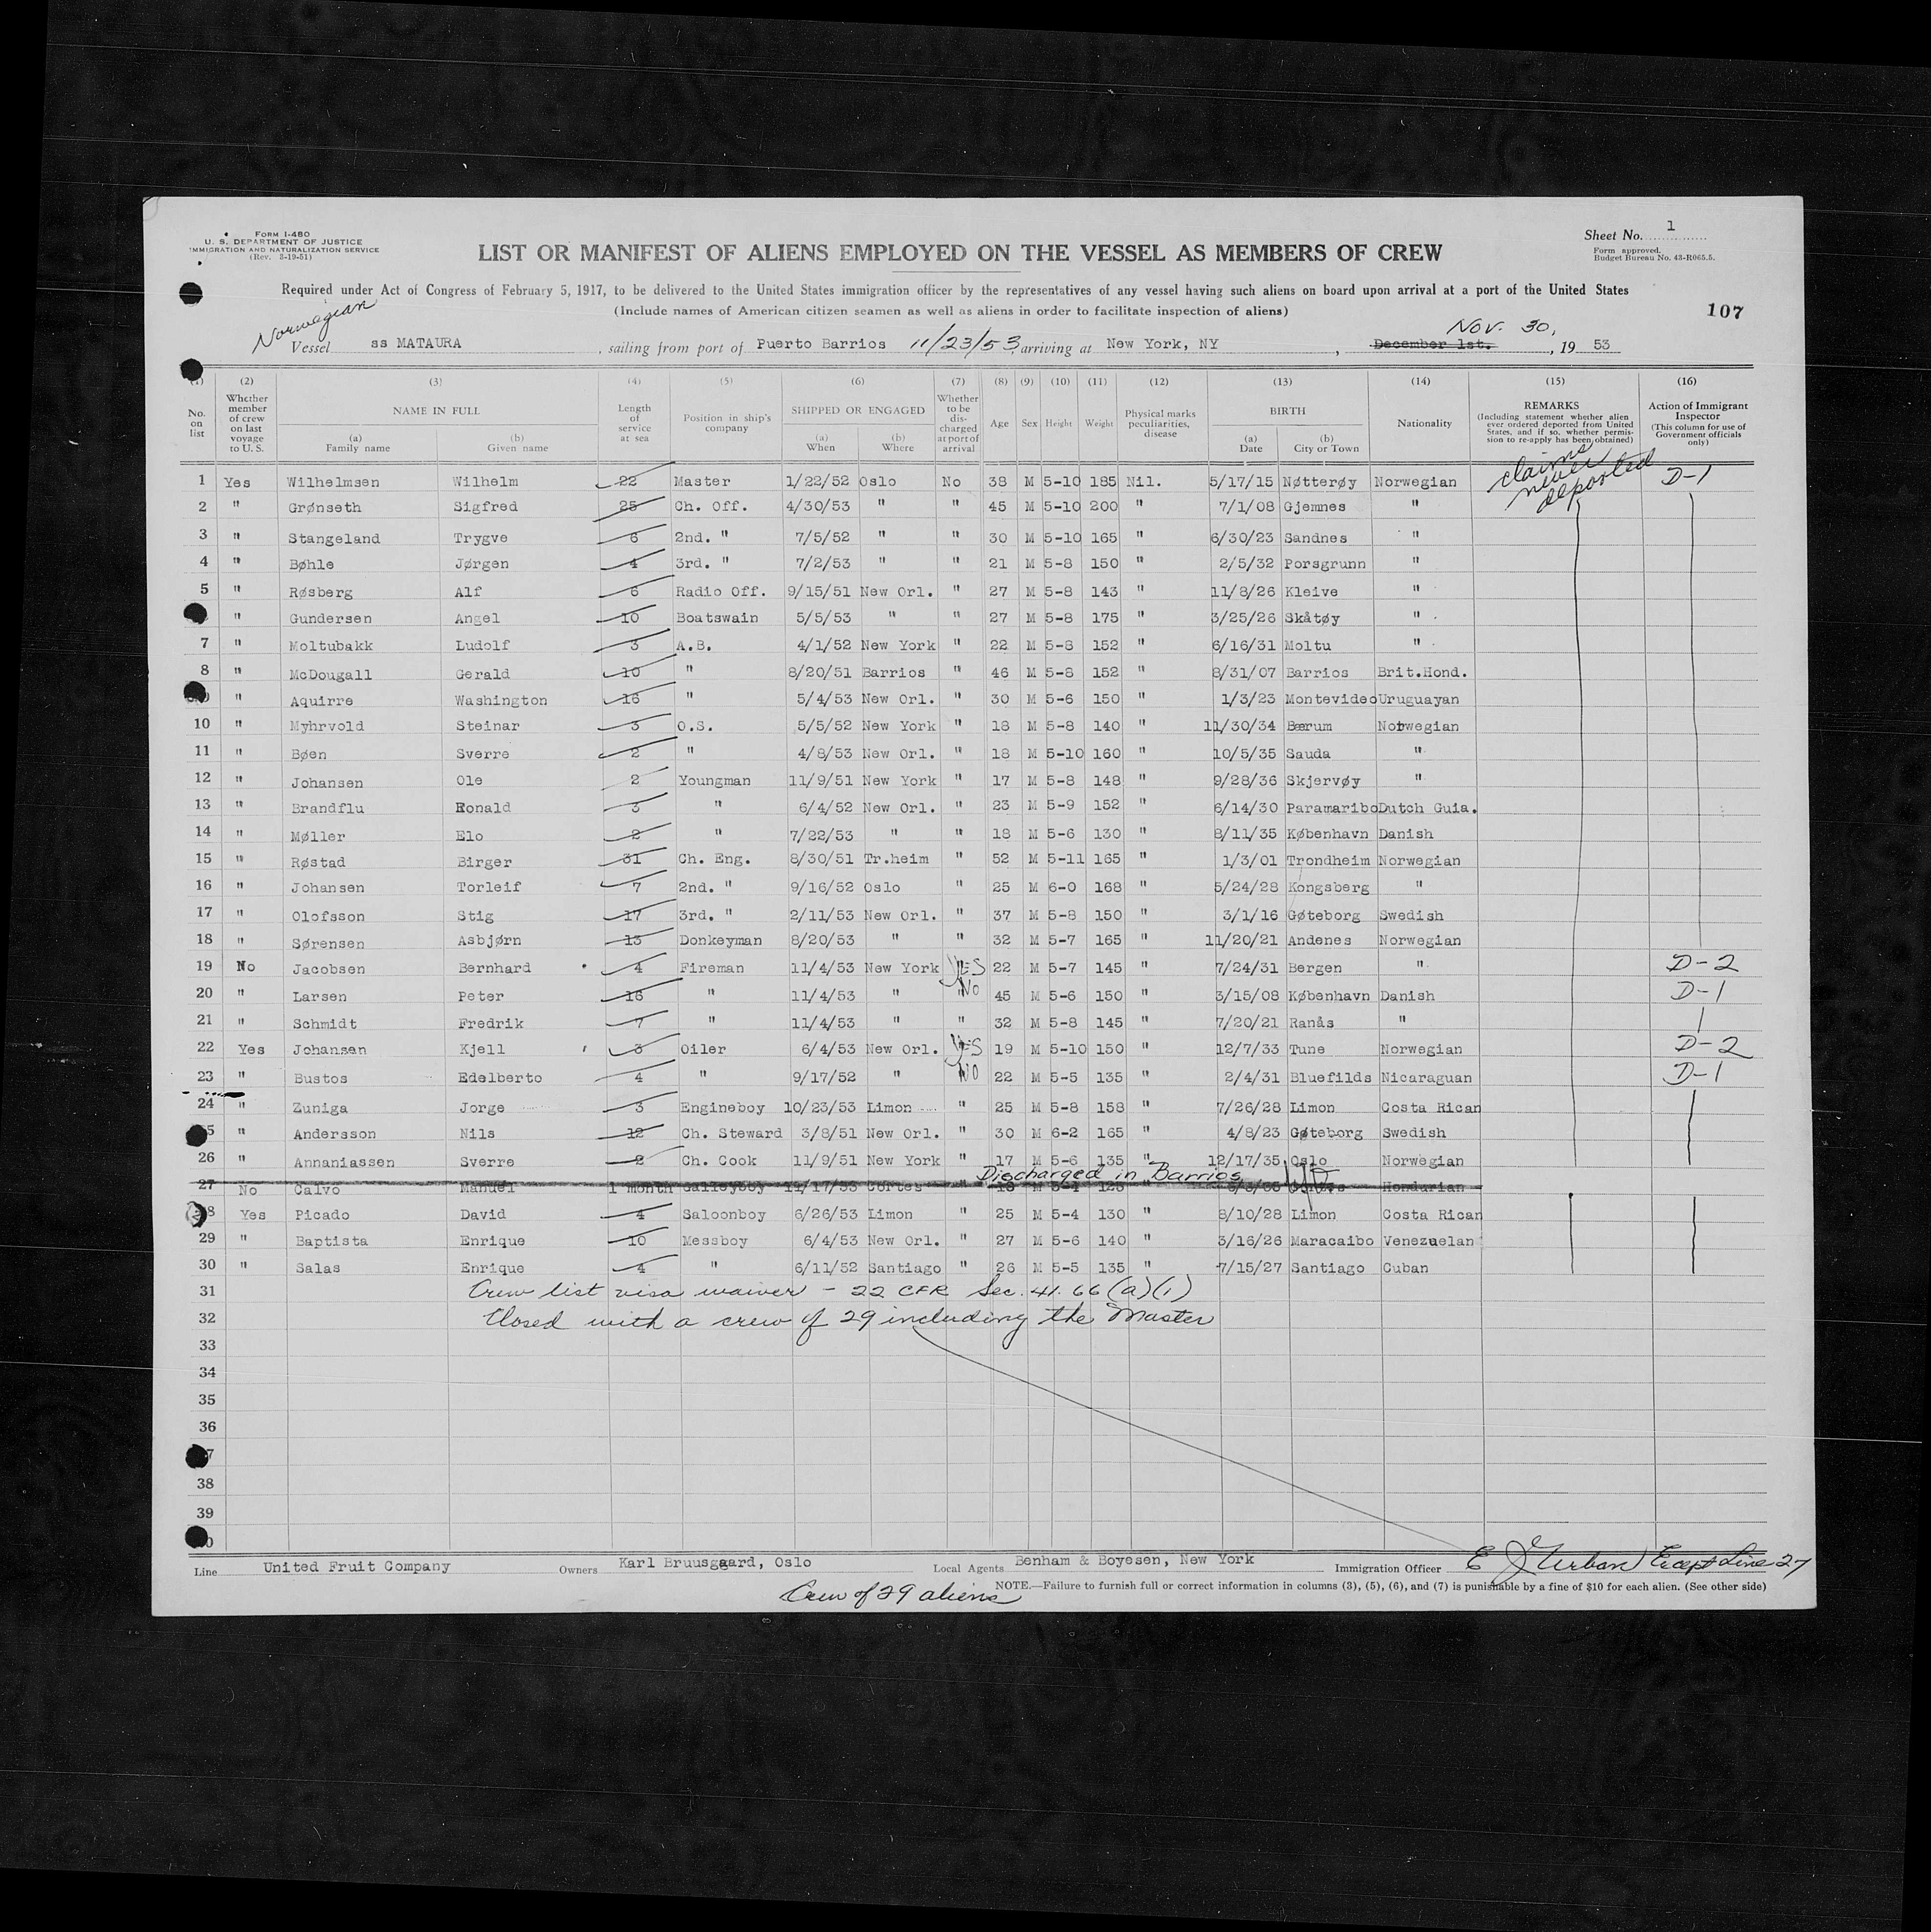 FORM I-480
U. S. DEPARTMENT OF JUSTICE
IMMIGRATION AND NATURALIZATION SERVICE
(Rev. 3-19-51)
LIST OR MANIFEST OF ALIENS EMPLOYED ON THE VESSEL AS MEMBERS OF CREW
Sheet No. 1
Form approved.
Budget Bureau No. 43-R065.5.
Required under Act of Congress of February 5, 1917, to be delivered to the United States immigration officer by the representatives of any vessel having such aliens on board upon arrival at a port of the United States
(Include names of American citizen seamen as well as aliens in order to facilitate inspection of aliens)
107
Norwegian
Nov. 30,
Vessel ss MATAURA, sailing from port of Puerto Barrios 11/23/53, arriving at New York, NY, December 1st., 19 53
(1) (2) (3) (4) (5) (6) (7) (8) (9) (10) (11) (12) (13) (14) (15) (16)
No. on list Whether member of crew on last voyage to U. S. NAME IN FULL (a) Family name (b) Given name Length of service at sea Position in ship's company SHIPPED OR ENGAGED (a) When (b) Where Whether to be discharged at port of arrival Age Sex Height Weight Physical marks peculiarities, disease BIRTH (a) Date (b) City or Town Nationality REMARKS (Including statement whether alien ever ordered deported from United States, and if so, whether permission to re-apply has been obtained) Action of Immigrant Inspector (This column for use of Government officials only)
1 Yes Wilhelmsen Wilhelm 22 Master 1/22/52 Oslo No 38 M 5-10 185 Nil. 5/17/15 Nøtterøy Norwegian claims never deported D-1
2 " Grønseth Sigfred 25 Ch. Off. 4/30/53 " " 45 M 5-10 200 " 7/1/08 Gjemnes "
3 " Stangeland Trygve 6 2nd. " 7/5/52 " " 30 M 5-10 165 " 6/30/23 Sandnes "
4 " Bøhle Jørgen 4 3rd. " 7/2/53 " " 21 M 5-8 150 " 2/5/32 Porsgrunn "
5 " Røsberg Alf 6 Radio Off. 9/15/51 New Orl. " 27 M 5-8 143 " 11/8/26 Kleive "
" Gundersen Angel 10 Boatswain 5/5/53 " " 27 M 5-8 175 " 3/25/26 Skåtøy "
7 " Moltubakk Ludolf 3 A.B. 4/1/52 New York " 22 M 5-8 152 " 6/16/31 Moltu "
8 " McDougall Gerald 10 " 8/20/51 Barrios " 46 M 5-8 152 " 8/31/07 Barrios Brit.Hond.
" Aquirre Washington 16 " 5/4/53 New Orl. " 30 M 5-6 150 " 1/3/23 Montevideo Uruguayan
10 " Myhrvold Steinar 3 O.S. 5/5/52 New York " 18 M 5-8 140 " 11/30/34 Bærum Norwegian
11 " Bøen Sverre 2 " 4/8/53 New Orl. " 18 M 5-10 160 " 10/5/35 Sauda "
12 " Johansen Ole 2 Youngman 11/9/51 New York " 17 M 5-8 148 " 9/28/36 Skjervøy "
13 " Brandflu Ronald 3 " 6/4/52 New Orl. " 23 M 5-9 152 " 6/14/30 Paramaribo Dutch Guia.
14 " Møller Elo 2 " 7/22/53 " " 18 M 5-6 130 " 8/11/35 København Danish
15 " Røstad Birger 31 Ch. Eng. 8/30/51 Tr.heim " 52 M 5-11 165 " 1/3/01 Trondheim Norwegian
16 " Johansen Torleif 7 2nd. " 9/16/52 Oslo " 25 M 6-0 168 " 5/24/28 Kongsberg "
17 " Olofsson Stig 17 3rd. " 2/11/53 New Orl. " 37 M 5-8 150 " 3/1/16 Gøteborg Swedish
18 " Sørensen Asbjørn 13 Donkeyman 8/20/53 " " 32 M 5-7 165 " 11/20/21 Andenes Norwegian
19 No Jacobsen Bernhard 4 Fireman 11/4/53 New York " YES 22 M 5-7 145 " 7/24/31 Bergen " D-2
20 " Larsen Peter 16 " 11/4/53 " " No 45 M 5-6 150 " 3/15/08 København Danish D-1
21 " Schmidt Fredrik 7 " 11/4/53 " " 32 M 5-8 145 " 7/20/21 Ranås "
22 Yes Johansen Kjell 3 Oiler 6/4/53 New Orl. " YES 19 M 5-10 150 " 12/7/33 Tune Norwegian D-2
23 " Bustos Edelberto 4 " 9/17/52 " " No 22 M 5-5 135 " 2/4/31 Bluefilds Nicaraguan D-1
24 " Zuniga Jorge 3 Engineboy 10/23/53 Limon " 25 M 5-8 158 " 7/26/28 Limon Costa Rican
5 " Andersson Nils 12 Ch. Steward 3/8/51 New Orl. " 30 M 6-2 165 " 4/8/23 Gøteborg Swedish
26 " Annaniassen Sverre 2 Ch. Cook 11/9/51 New York " 17 M 5-6 135 " 12/17/35 Oslo Norwegian
Discharged in Barrios
27 No Calvo Manuel 1 month Galleyboy 11/17/53 Cortes " 18 M 5-4 Hondurian
8 Yes Picado David 4 Saloonboy 6/26/53 Limon " 25 M 5-4 130 " 8/10/28 Limon Costa Rican
29 " Baptista Enrique 10 Messboy 6/4/53 New Orl. " 27 M 5-6 140 " 3/16/26 Maracaibo Venezuelan
30 " Salas Enrique 4 " 6/11/52 Santiago " 26 M 5-5 135 " 7/15/27 Santiago Cuban
31 Crew list visa waiver - 22 CFR Sec. 41.66(a)(1)
32 Closed with a crew of 29 including the Master
33
34
35
36
7
38
39
0
Line United Fruit Company Owners Karl Bruusgaard, Oslo Local Agents Benham & Boyesen, New York Immigration Officer E J Urban Except Line 27
NOTE.—Failure to furnish full or correct information in columns (3), (5), (6), and (7) is punishable by a fine of $10 for each alien. (See other side)
Crew of 29 aliens